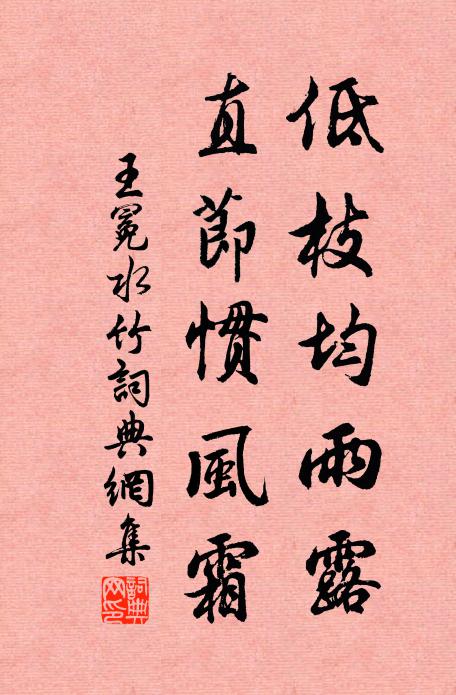 低枝均雨露
直節慣風霜
王冕水竹詞典網集
詞典